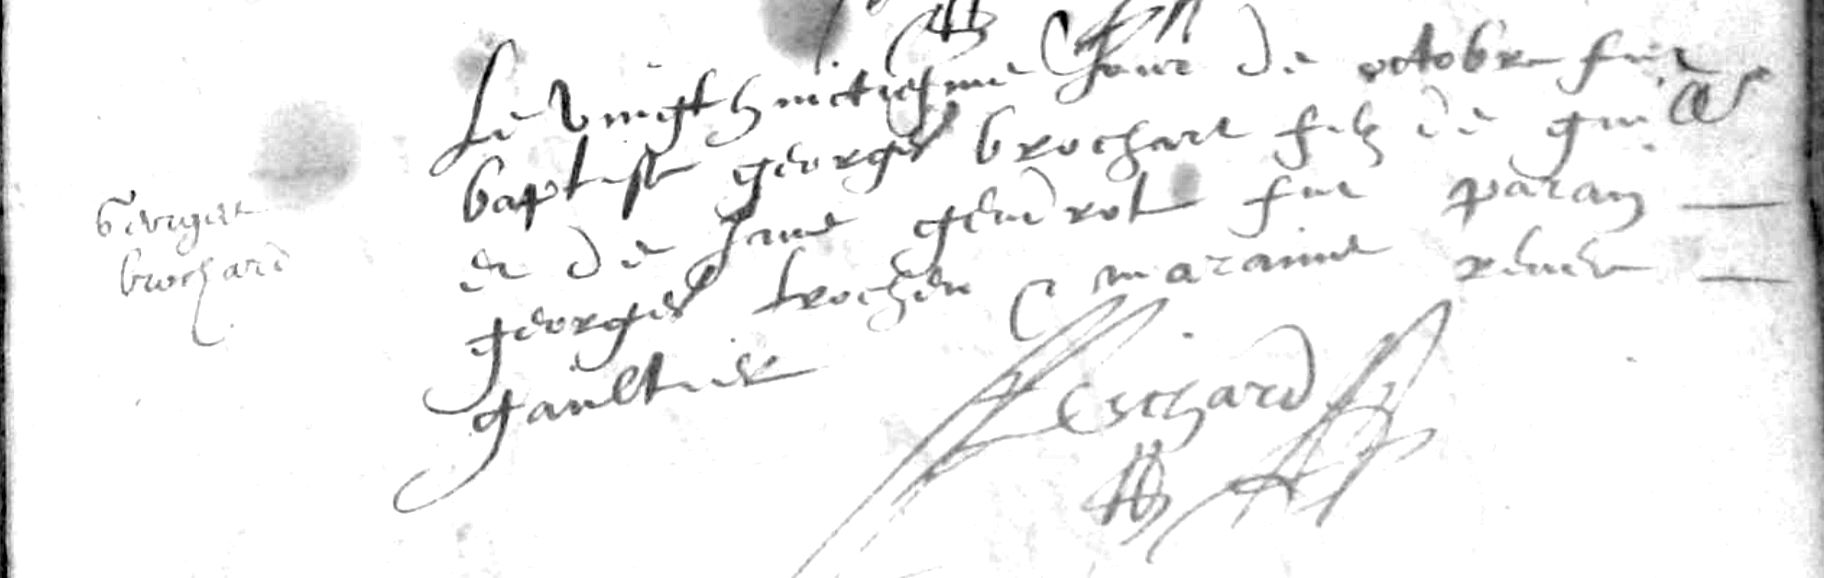 Georget
brochard
Le vingt huictiesme Jour de octobre fut
baptisse georges brochart filz de
et de Jane gendrot fut parain
georges brochen maraine renee
gaultier